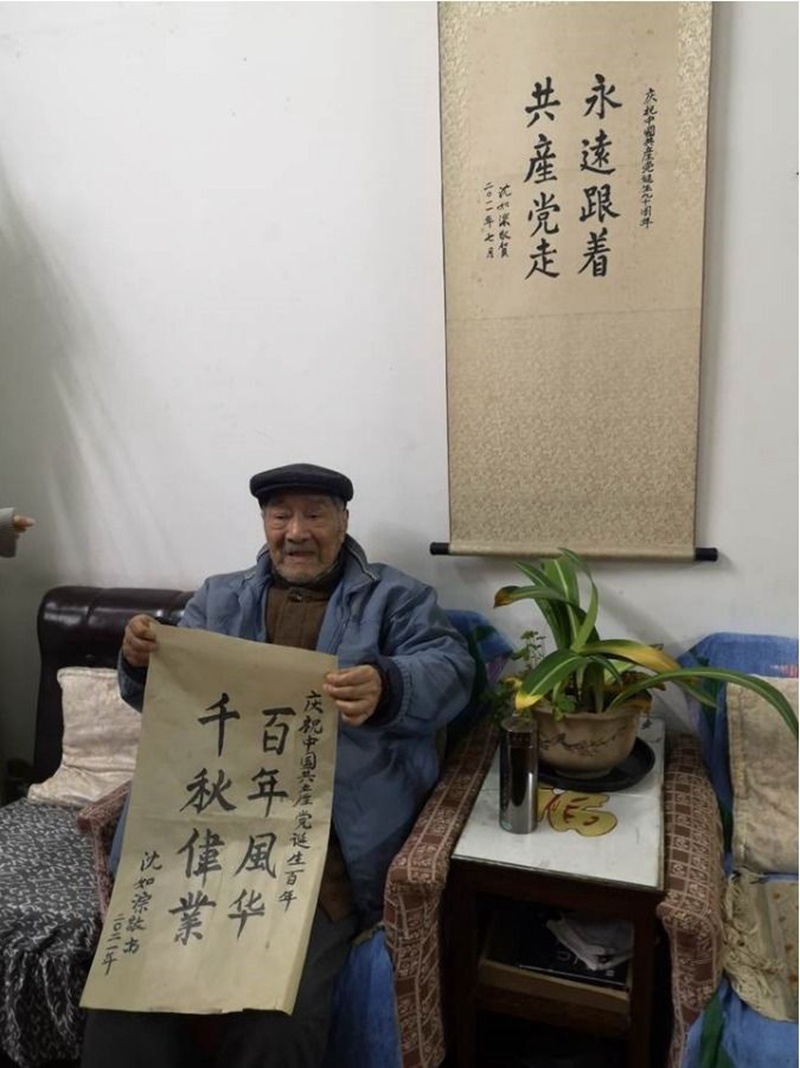 庆祝中國共產党诞生九十周年
永遠跟着
共産党走
沈如淙敬賀
二〇一一年七月
庆祝中国共产党诞生百年
百年風华
千秋偉業
沈如淙敬书
二〇二一年
福